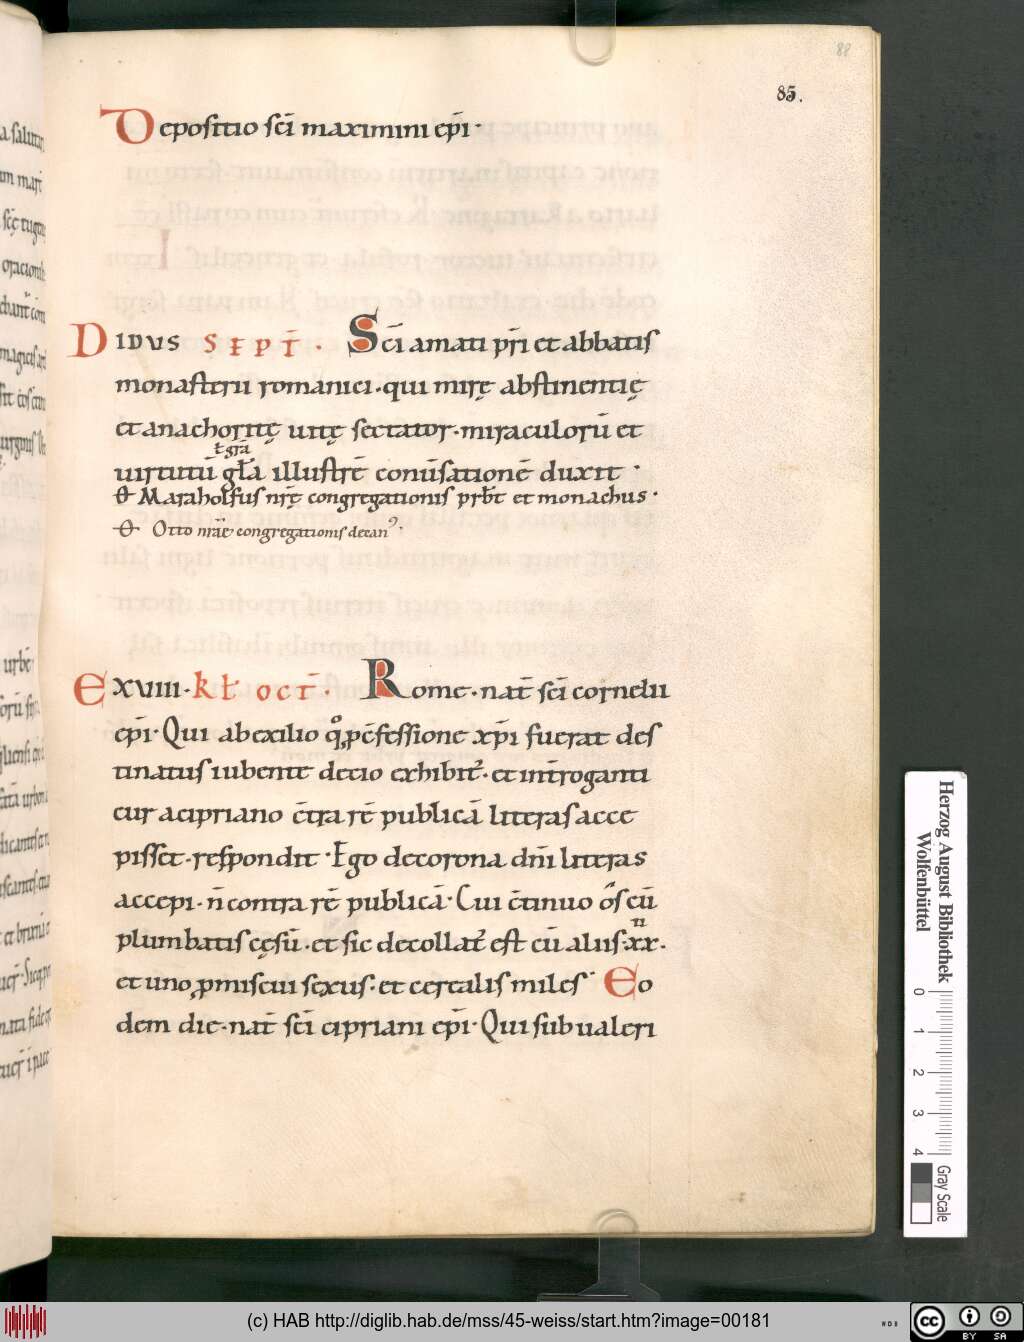 88
85.
Depositio sc̄i maximini ep̄i·
D IDVS SEPT̄. Sc̄i amati pr̄i et abbatis
monasterii romanici·qui mirę abstinentię
et anachoritę uitę sectator·miraculorū et
ł gr̄a
uirtutū gl̄a illustrē conūsationē duxit·
Maraholfus nr̄ę congregationis prb̄t et monachus·
Otto nr̄ae congregationis decan᾽·
E XVIII·kł oct̄· Rome·nat̄ sc̄i cornelii
ep̄i·Qui ab exilio q̊ ꝓ c̄fessione xp̄i fuerat des
tinatus iubente decio exhibit᾽·et int̄roganti
cur a cipriano c̄tra rē publicā literas acce
pisset·respondit·Ego de corona dn̄i literas
accepi·n̄ contra rē publicā·Cui c̄tinuo ōs cū
plumbatis cęsū·et sic decollat᾽ est cū aliis·xx·
et uno ꝓmiscui sexus·et cerealis miles· Eo
dem die·nat̄ sc̄i cipriani ep̄i·Qui sub ualeri
Herzog August Bibliothek
Wolfenbüttel
0 1 2 3 4
Gray Scale
(c) HAB http://diglib.hab.de/mss/45-weiss/start.htm?image=00181
WDB
cc BY SA